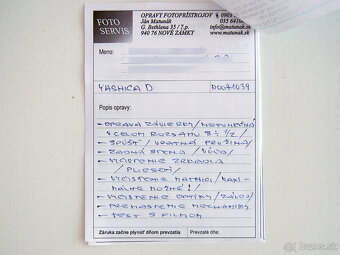 FOTO
SERVIS
OPRAVY FOTOPRÍSTROJOV
Ján Matunák
G. Bethlena 35 / 7.p.
940 76 NOVÉ ZÁMKY
0903
033 6410
info@matunak.sk
www.matunak.sk
Meno:
YASHICA D D0071039
Popis opravy:
- OPRAVA ZÁVIERKY/NEFUNKČNÁ
V CELOM ROZSAHU B-1/2/
- SPÚŠŤ/VRATNÁ PRUŽINA/
- ZADNÁ STENA/VÔĽA/
- VYČISTENIE ZRKADLA/
/PLIESEŇ/
- VYČISTENIE MATNICI/MAXI-
MÁLNE MOŽNÉ!/
- VYČISTENIE OPTIKY/ZÁVOJ/
- PREMASTENIE MECHANIKY
- TEST S FILMOM
Záruka začne plynúť dňom prevzatia Prevzaté dňa:
bazos.sk